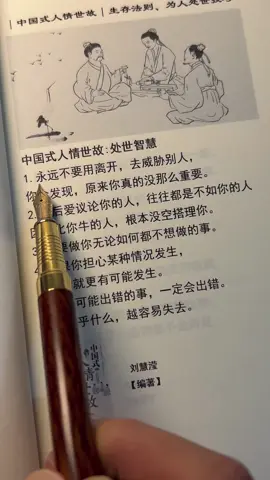 中国式人情世故 | 生存法则、为人处世
中国式人情世故:处世智慧
1. 永远不要用离开，去威胁别人，
发现，原来你真的没那么重要。
后爱议论你的人，往往都是不如你的人
比你牛的人，根本没空搭理你。
要做你无论如何都不想做的事。
你担心某种情况发生，
就更有可能发生。
可能出错的事，一定会出错。
乎什么，越容易失去。
刘慧滢
【编著】
中国式